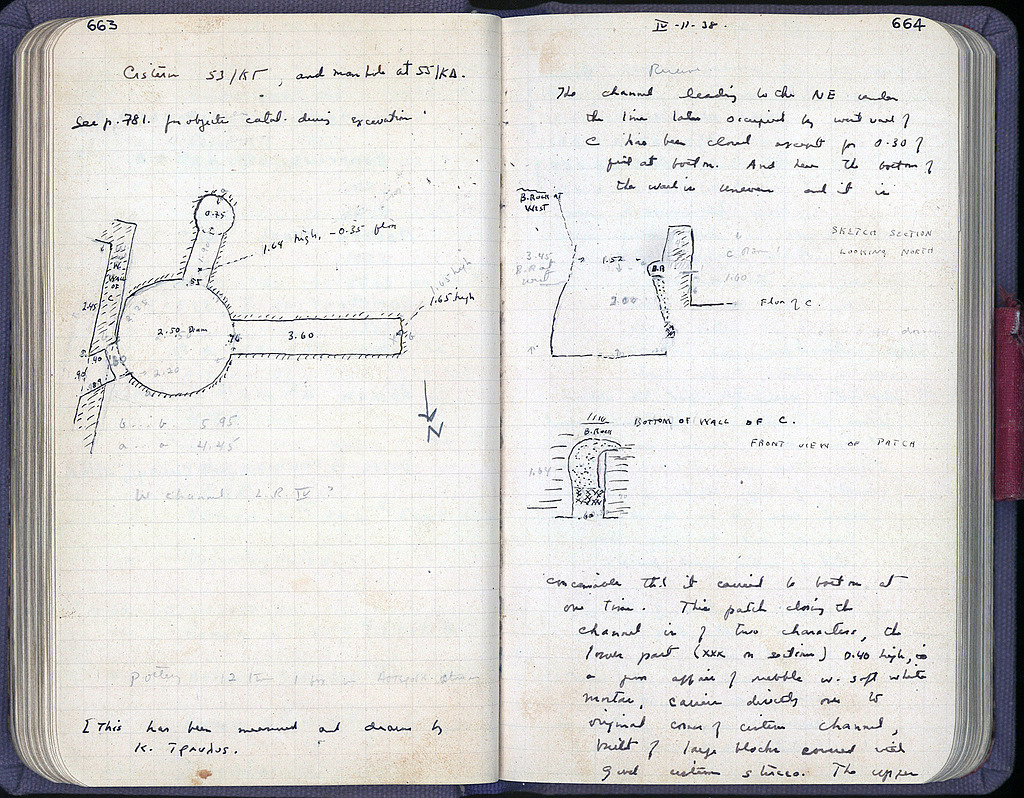 663
Cistern 53/ΚΓ, and manhole at 55/ΚΔ.
See p. 781. for objects catal. during excavation
0.75
1.64 high, -0.35 from
.55
W. WALL OF C
2.45
2.25
2.50 Diam
.76
3.60
1.65 high
1.65 high
1.40
2.20
.90
N
b...b. 5.95
a...a 4.45
W channel L.R. IV ?
Pottery 12 tins 1 box in
[This has been measured and drawn by
K. Τραυλος.
IV-11-38.
664
The channel leading to the NE under
the line later occupied by west wall of
C has been closed except for 0.30 of
at bottom. And here the bottom of
the wall is uneven and it is
B.ROCK AT WEST
SKETCH SECTION
LOOKING NORTH
3.45
1.52
B.R
1.60
3.00
Floor of C.
BOTTOM OF WALL OF C.
B.ROCK
FRONT VIEW OF PATCH
1.64
.60
conceivable that it carried to bottom at
one time. This patch closing the
channel is of two characters, the
lower part (XXX on sections) 0.40 high, is
a poor affair of rubble w. soft white
mortar, carried directly over to
original corner of cistern channel,
built of large blocks covered with
good cistern stucco. The upper